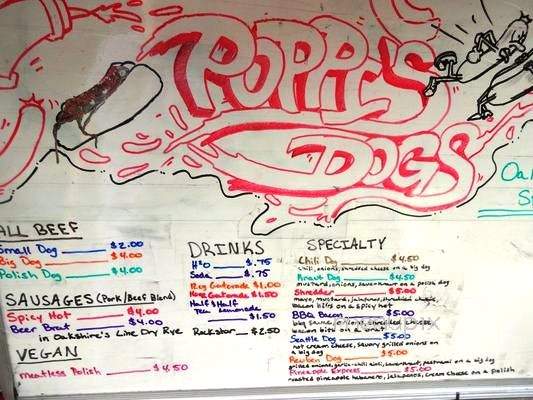 POPPI'S
DOGS
ALL BEEF
Small Dog $2.00
Big Dog $4.00
Polish Dog $4.00
SAUSAGES (Pork/Beef Blend)
Spicy Hot $4.00
Beer Brat $4.00
in Oakshire's Line Dry Rye
VEGAN
Meatless Polish $4.50
DRINKS
H2O $.75
Soda $.75
Reg Gatorade $1.00
Huge Gatorade $1.50
Half & Half
Tea Lemonade
$1.50
Rockstar $2.50
SPECIALTY
Chili Dog $4.50
chili, onions, shredded cheese on a big dog
Kraut Dog $4.50
mustard, onions, sauerkraut on a polish dog
Shredder $5.00
mayo, mustard, jalapenos, shredded cheese,
bacon bits on a spicy hot
BBQ Bacon $5.00
bbq sauce, onions, shredded cheese
bacon bits on a brat
Seattle Dog $5.00
hot cream cheese, savory grilled onions on
a big dog
Reuben Dog $5.00
grilled onions, garlic-chili aioli, sauerkraut, pastrami on a big dog
Pineapple Express $5.00
roasted pineapple habanero, jalapenos, cream cheese on a polish